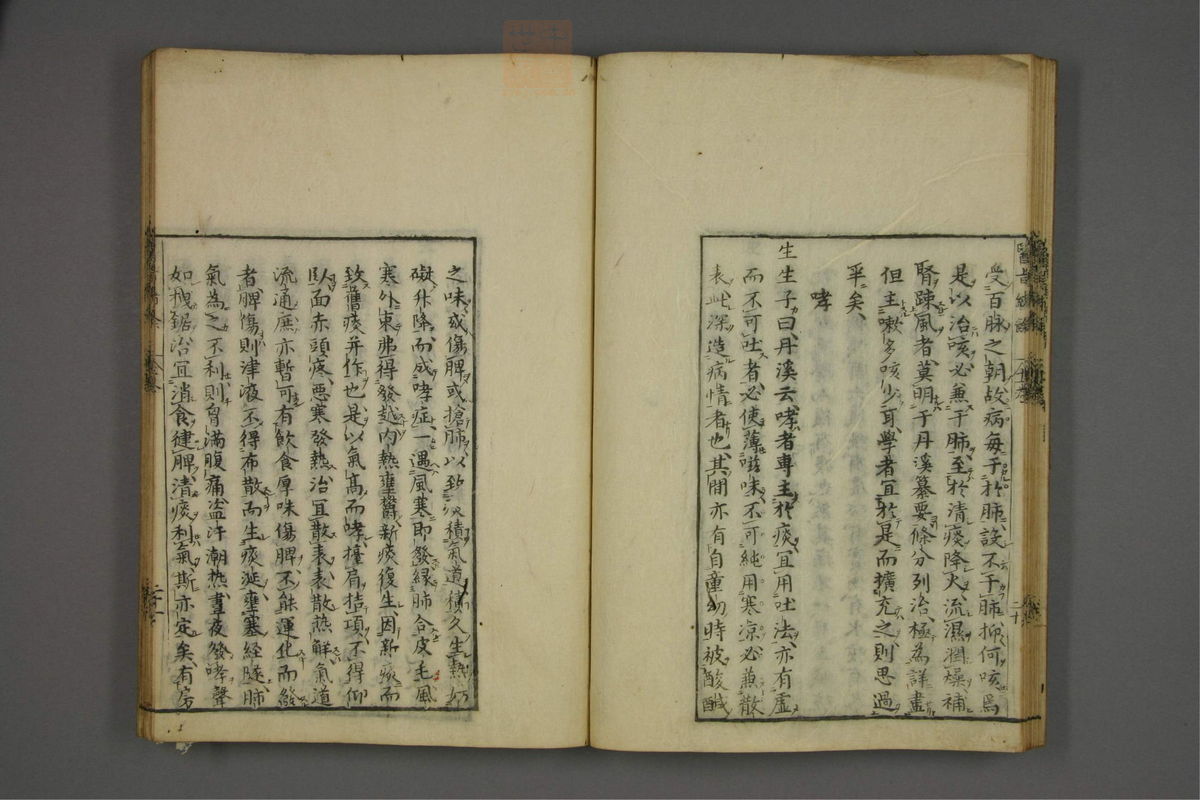 受百脉之朝故病毎干於肺設不干肺抑何咳焉
是以治咳必兼于肺至於清痰降火流濕潤燥補
腎疎風者莫明于丹溪纂要條分列治極為詳盡
但主嗽多咳少耳學者宜於是而擴充之則思過
半矣
哮
生生子曰丹溪云哮者專主於痰宜用吐法亦有虛
而不可吐者必使薄滋味不可純用寒凉必兼散
表此深造病情者也其間亦有自童幼時被酸鹹
之味或傷脾或搶肺以致痰積氣道積久生熱妨
礙升降而成哮症一遇風寒即發縁肺合皮毛風
寒外束弗得發越内熱壅欝新痰復生因新痰而
致舊痰并作也是以氣高而哮擡肩擷項不得仰
臥面赤頭疼惡寒發熱治宜散表表散熱觧氣道
流通庶亦暫可有飲食厚味傷脾不能運化而發
者脾傷則津液不得布散而生痰涎壅塞經隧肺
氣為之不利則胷滿腹痛盗汗潮熱晝夜發哮聲
如拽鋸治宜消食健脾清痰利氣斯亦定矣有房